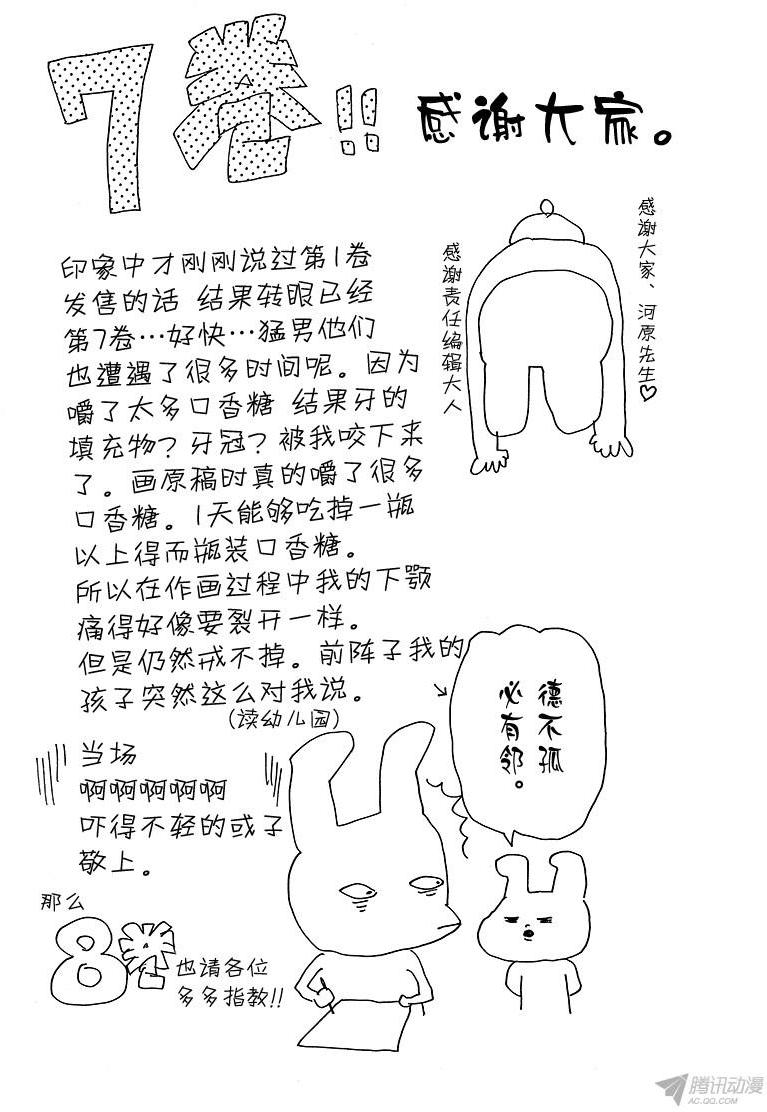 7卷!! 感谢大家。
感谢大家、河原先生♡
感谢责任编辑大人
印象中才刚刚说过第1卷
发售的话 结果转眼已经
第7卷…好快…猛男他们
也遭遇了很多时间呢。因为
嚼了太多口香糖 结果牙的
填充物？牙冠？被我咬下来
了。画原稿时真的嚼了很多
口香糖。1天能够吃掉一瓶
以上得而瓶装口香糖。
所以在作画过程中我的下颚
痛得好像要裂开一样。
但是仍然戒不掉。前阵子我的
孩子突然这么对我说。
(读幼儿园)
德不孤
必有邻。
当场
啊啊啊啊啊
吓得不轻的或子
敬上。
那么
8卷 也请各位
多多指教!!
腾讯动漫
AC.QQ.COM